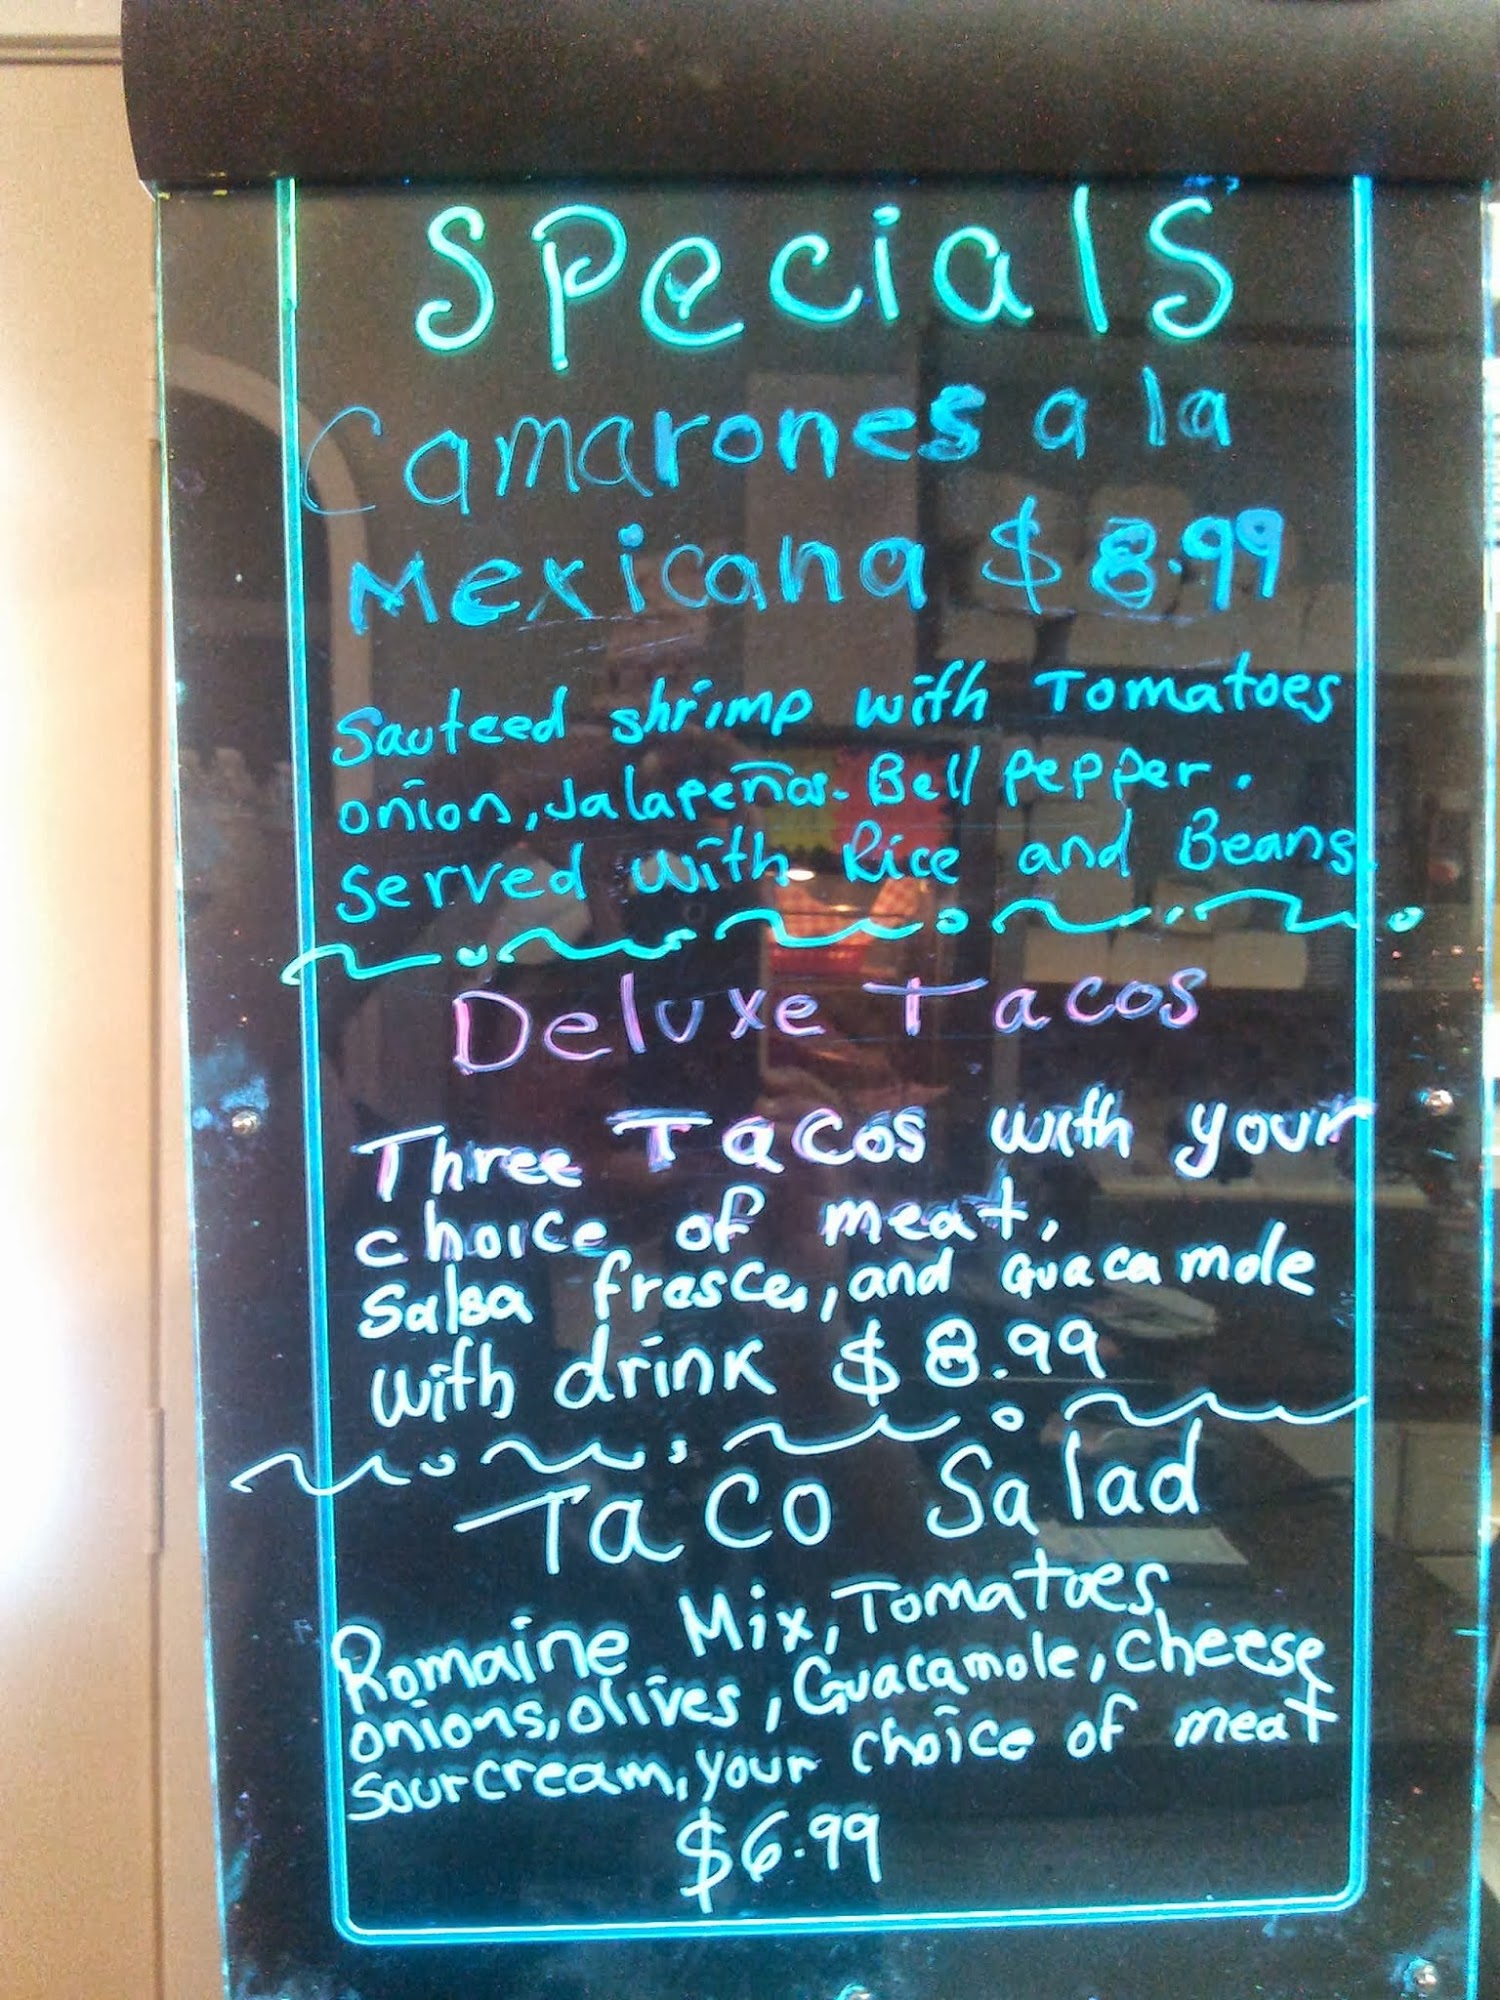 Specials
Camarones a la
Mexicana $8.99
Sauteed shrimp with Tomatoes
onion, Jalapeños. Bell pepper.
Served with Rice and Beans.
Deluxe Tacos
Three Tacos with your
choice of meat,
Salsa fresca, and Guacamole
with drink $8.99
Taco Salad
Romaine Mix, Tomatoes
onions, olives, Guacamole, cheese
sour cream, your choice of meat
$6.99